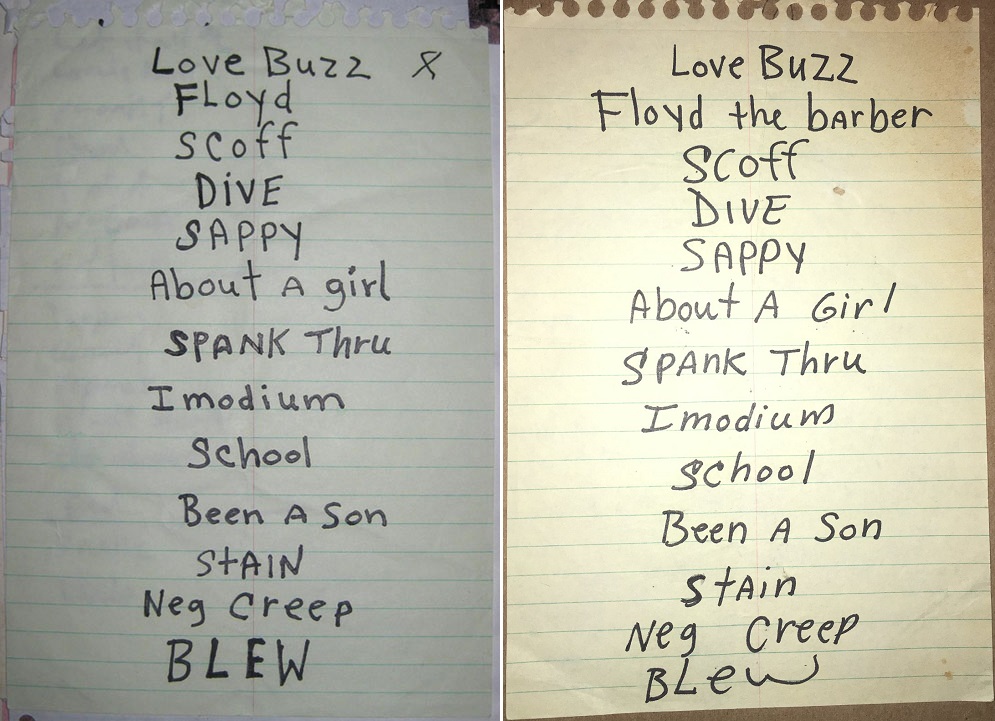 Love Buzz X
FLoyd
SCoff
DiVE
SAPPY
About A girl
SPANK Thru
Imodium
School
Been A Son
StAIN
Neg Creep
BLEW
Love Buzz
Floyd the barber
SCoff
DIVE
SAPPY
About A Girl
SPAnK Thru
Imodium
School
Been A Son
StAin
Neg Creep
BLew